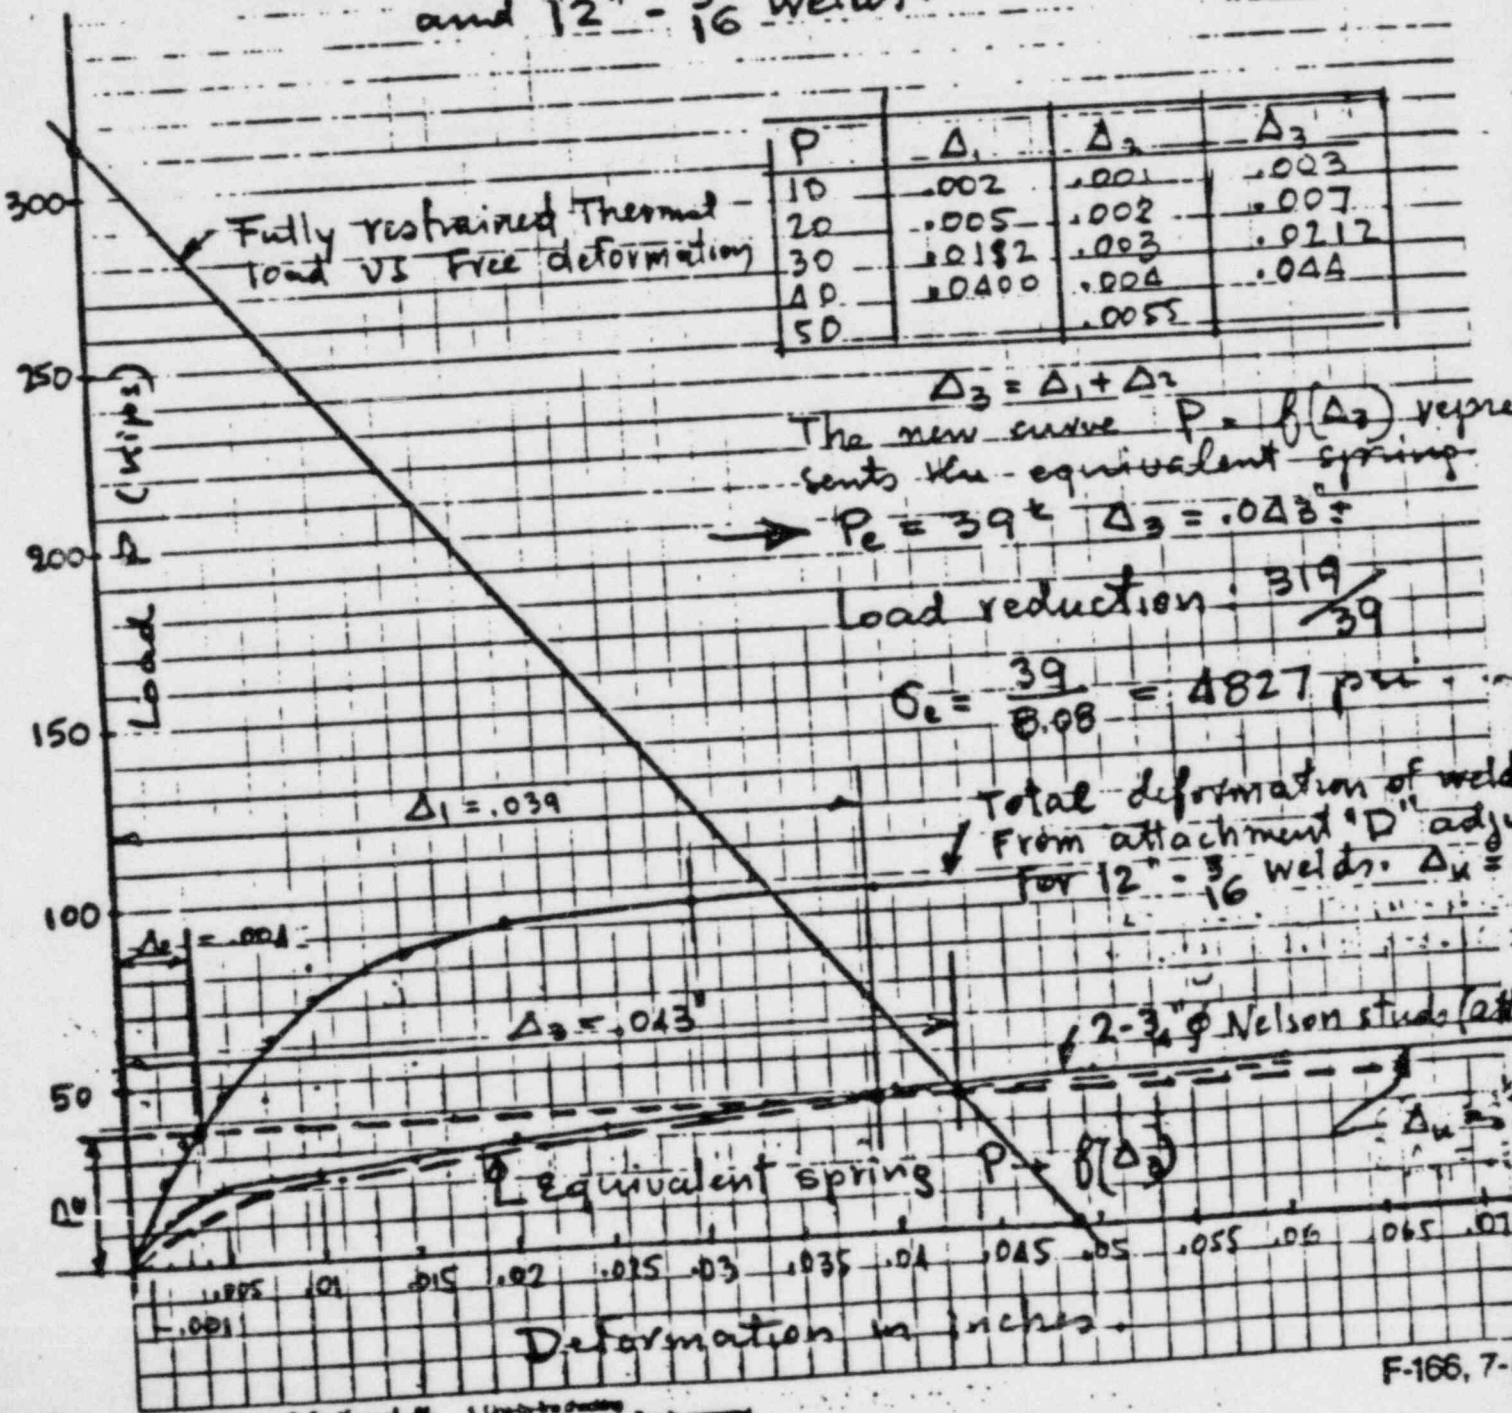 and 12" - 3/16 welds.
P Δ₁ Δ₂ Δ₃
10 .002 .001 .003
20 .005 .002 .007
30 .0182 .003 .0212
40 .0400 .004 .044
50 .0055
Fully restrained Thermal
load vs Free deformation
Δ₃ = Δ₁ + Δ₂
The new curve P = f(Δ₃) repre
sents the equivalent spring
→ Pe = 39k Δ₃ = .043"±
Load reduction : 319/39
σe = 39/8.08 = 4827 psi
Total deformation of weld
From attachment "D" adju
For 12" - 3/16 welds. Δu =
Δ₁ = .039
Δ₂ = .004
Δ₃ = .043"
2-3/4"φ Nelson studs (att
Δu =
Equivalent spring P = f(Δ₃)
Pe
Load P (kips)
300
250
200
150
100
50
.005 .01 .015 .02 .025 .03 .035 .04 .045 .05 .055 .06 .065 .07
.001
Deformation in inches.
F-166, 7-